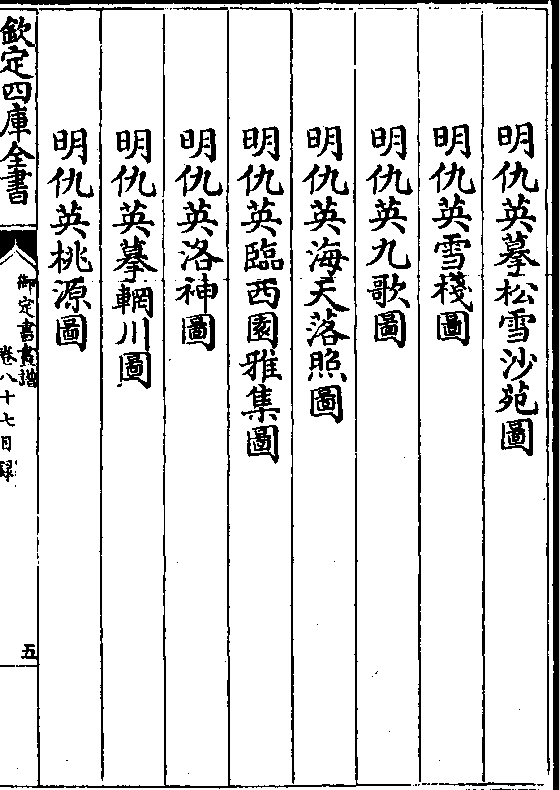 明仇英摹松雪沙苑圖
明仇英雪棧圖
明仇英九歌圖
明仇英海天落照圖
明仇英臨西園雅集圖
明仇英洛神圖
明仇英摹輞川圖
明仇英桃源圖
欽定四庫全書
御定書畫譜
卷八十七目録
五